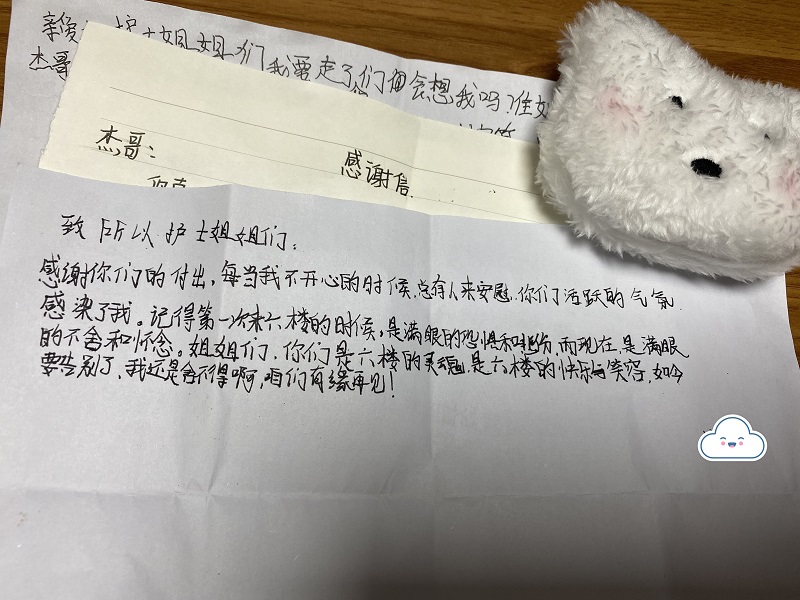 亲爱 护士姐姐们我要走了们會会想我吗!佳如
杰哥
杰哥:
感谢信
致所以护士姐姐们:
感谢你们的付出,每当我不开心的时候,总有人来安慰.你们活跃的气氛
感染了我。记得第一次来六楼的时候,是满眼的恐惧和悲伤,而现在,是满眼
的不舍和怀念。姐姐们,你们是六楼的灵魂,是六楼的快乐与笑容,如今
要告别了,我还是舍不得啊,咱们有缘再见!